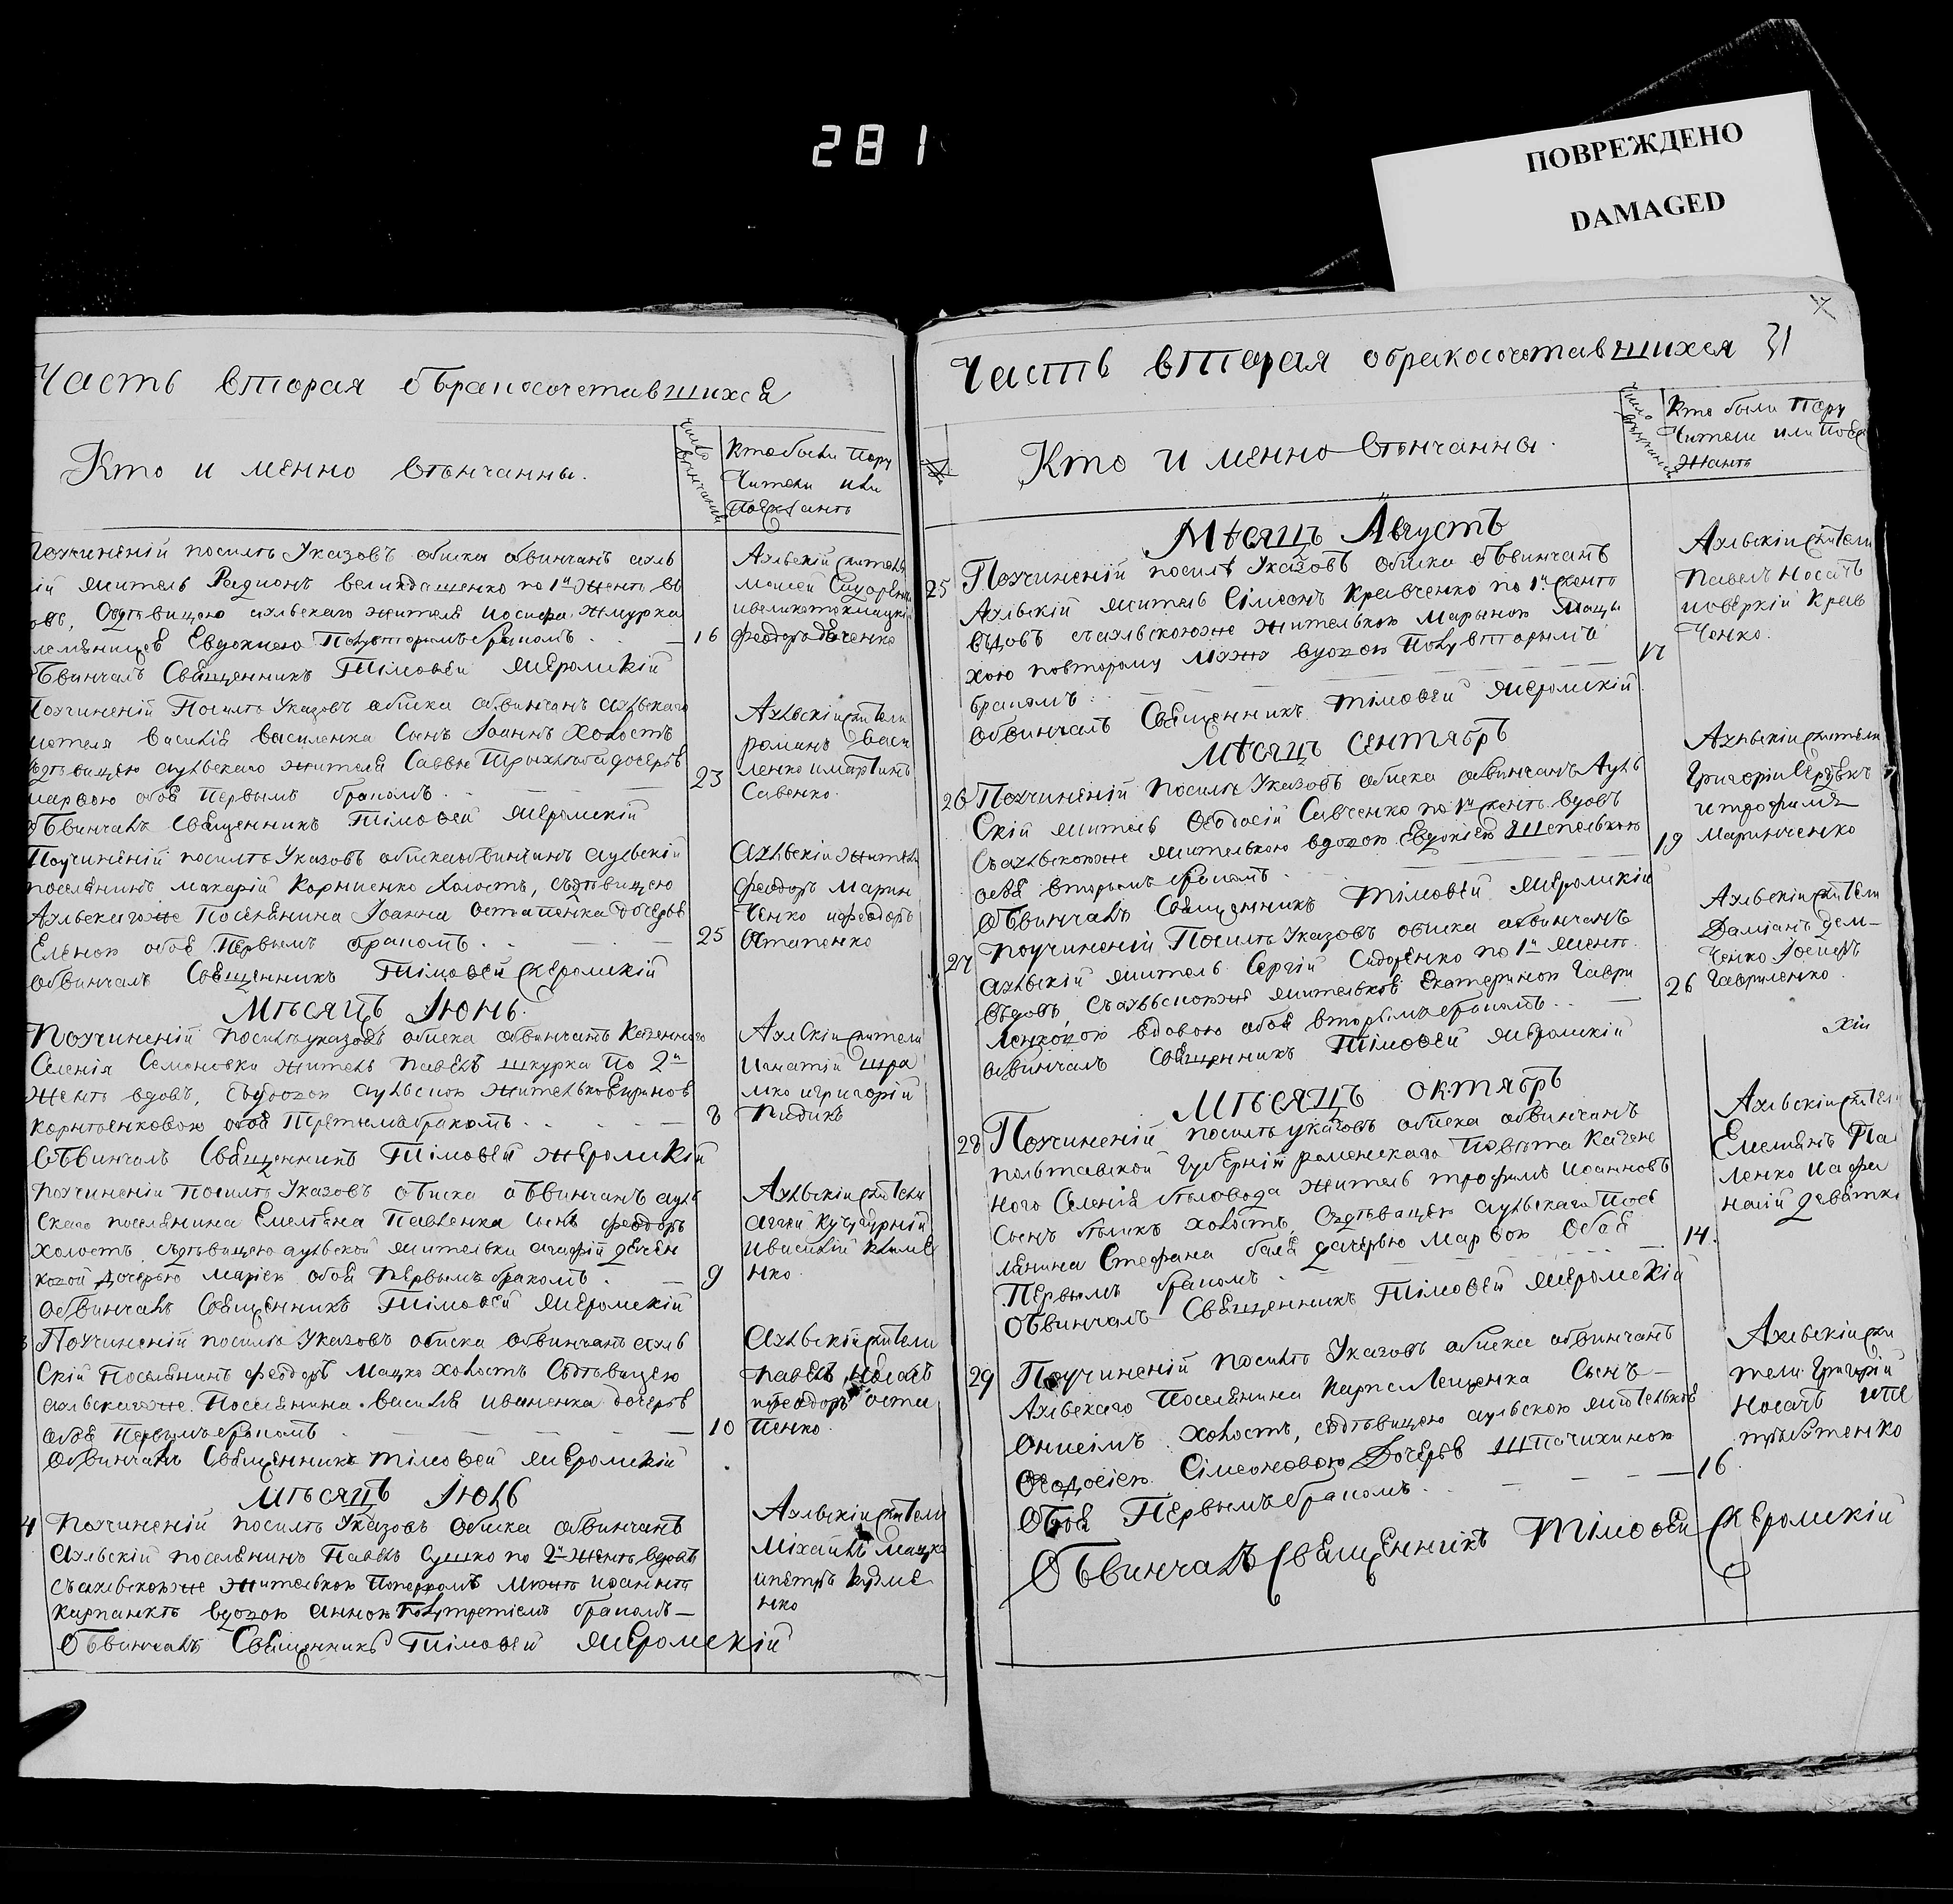 281
ПОВРЕЖДЕНО
DAMAGED
Часть вторая обракосочетавшихся
Кто и менно вѣнчанны.
Число вѣнчаній
Кто были пору
Чители или
Поезжанъ
Поучиненій посилѣ Указовъ обиска обвинчанъ ахль
ій житель Радионъ великдашенко по 1й женѣ вд
овъ, Съдѣвицою ахльскаго жителя иосифа жмурка
племянницею Евдокиею Полувторымъ бракомъ
16
Обвинчалъ Священникъ Тімовей Жеромскій
Ахльскій житель
Моисей Сидоренко
ивеликотокмацкій
феодоръ
Поучиненій Посилѣ Указовъ обиска обвинчанъ ахльскаго
жителя василія василенка Сынъ Іоаннъ Холостъ
съдѣвицею ахльскаго жителя Саввы дочерью
марвою обоя Первымъ бракомъ
23
Обвинчалъ Священникъ Тімовей Жеромскій
Ахльскіи жители
романъ Васи
ленко имартинъ
Савенко.
Поучиненій посилѣ Указовъ обиска обвинчанъ ахльскій
поселянинъ макарій Корниенко Холостъ, съдѣвицею
Ахльскагоже Поселянина Іоанна Остапенка дочерью
Еленою обоя Первымъ бракомъ
25
обвинчалъ Священникъ Тімовей Жеромскій
Ахльскіи жители
феодоръ Марин
ченко ифеодоръ
Остапенко
Мѣсяцъ Іюнь.
Поучиненій посилѣ указовъ обиска обвинчанъ Казеннаго
Селенія Семеновки житель Павелъ шкурка по 2й
женѣ вдовъ, Съвдовою ахльскою жителькою
обоя Третьимъ бракомъ
8
Обвинчалъ Священникъ Тімовей Жеромскій
Ахлскіи жители
Игнатій шра
мко игригорій
Пидикъ
Поучиненій Посилѣ Указовъ обиска обвинчанъ ахль
Скаго поселянина Емелѣяна Павленка Сынъ феодоръ
холостъ, съдѣвицею ахльской жителки агафій дячен
ковой дочерью маріею обоя первымъ бракомъ
9
Обвинчалъ Священникъ Тімовей Жеромскій
Ахльскіи жители
аггей Кучугурній
ивасилій Климе
нко
Поучиненій посилѣ Указовъ обиска обвинчанъ ахль
Скій Поселянинъ феодоръ Мацко холостъ Съдѣвицею
ахльскагоже Поселянина василія иваненка дочерью
обоя Первымъ бракомъ
10
Обвинчалъ Священникъ Тімовей Жеромскій
Ахльскій жители
павелъ Носачъ
ифеодоръ оста
пенко
Мѣсяцъ Іюль
Поучиненій посилѣ Указовъ обиска обвинчанъ
Ахльскій поселянинъ Павелъ Сушко по 2й женѣ вдовъ
съахльскоюже жителькою Поперв​омъ мужѣ иоаннѣ
вдовою анною Полутретіемъ бракомъ
Обвинчалъ Священникъ Тімовей Жеромскій
Ахльскіи жители
Міхаилъ Мацко
ипетръ Кузме
нко
Часть вторая обракосочетавшихся 31
№
Кто и менно вѣнчанна.
Число вѣнчаній
Кто были Пору
Чители или Поез
жанъ
Мѣсяцъ Августъ
25 Поучиненій посилѣ Указовъ обиска обвинчанъ
Ахльскій житель Сімеонъ Кравченко по 1й женѣ
вдовъ съахльскоюже жителькою Марыною Мацы
хою повторому мужѣ вдовою Полувторымъ
бракомъ
17
обвинчалъ Священникъ Тімовей Жеромскій
Ахльскіи жители
Павелъ Носачъ
иоверкій Крав
ченко.
Мѣсяцъ Сентябръ
26 Поучиненій посилѣ Указовъ обиска обвинчанъ Ахль
Скій житель Феодосій Савченко по 1й женѣ вдовъ
Съахльскоюже жителькою вдовою Евдокіею
обоя вторымъ бракомъ
19
Обвинчалъ Священникъ Тімовей Жеромскій
Ахльскіи жители
Григорій Сердюкъ
итрофимъ
Маринченко
27 Поучиненій Посилѣ Указовъ обиска обвинчанъ
ахльскій житель Сергій Сидоренко по 1й женѣ
вдовъ, Съахльскоюже жителькою Екатериною Гаври
ленковою вдовою обоя вторымъ бракомъ
26
обвинчалъ Священникъ Тімовей Жеромскій
Ахльскіи жители
Даміанъ дем
ченко Іосифъ
Гавриленко
Мѣсяцъ октябръ
28 Поучиненій посилѣ указовъ обиска обвинчанъ
полтавской Губерній роменскаго Повѣта Казен
ного Селенія бѣловода житель трофимъ иоанновъ
Сынъ бѣликъ холостъ, Съдѣвицею ахльскаго Посе
лянина Стефана балѣ дочерью Марвою Обоя
Первымъ бракомъ
14.
Обвинчалъ Священникъ Тімовей Жеромскій
Ахльскіи жители
Емелѣянъ Па
ленко иафа
насій девятко
29 Поучиненій посилѣ Указовъ обиска обвинчанъ
Ахльскаго Поселянина Карпа Лещенка Сынъ
Онисімъ холостъ, съдѣвицею ахльскою жителькою
Феодосіею Сімеоновою Дочерью Шпачихиною
Обоя Первымъ бракомъ
16.
Обвинчалъ Священникъ Тімовей Жеромскій
Ахльскіи жи
тели Григорій
Носачъ ипе